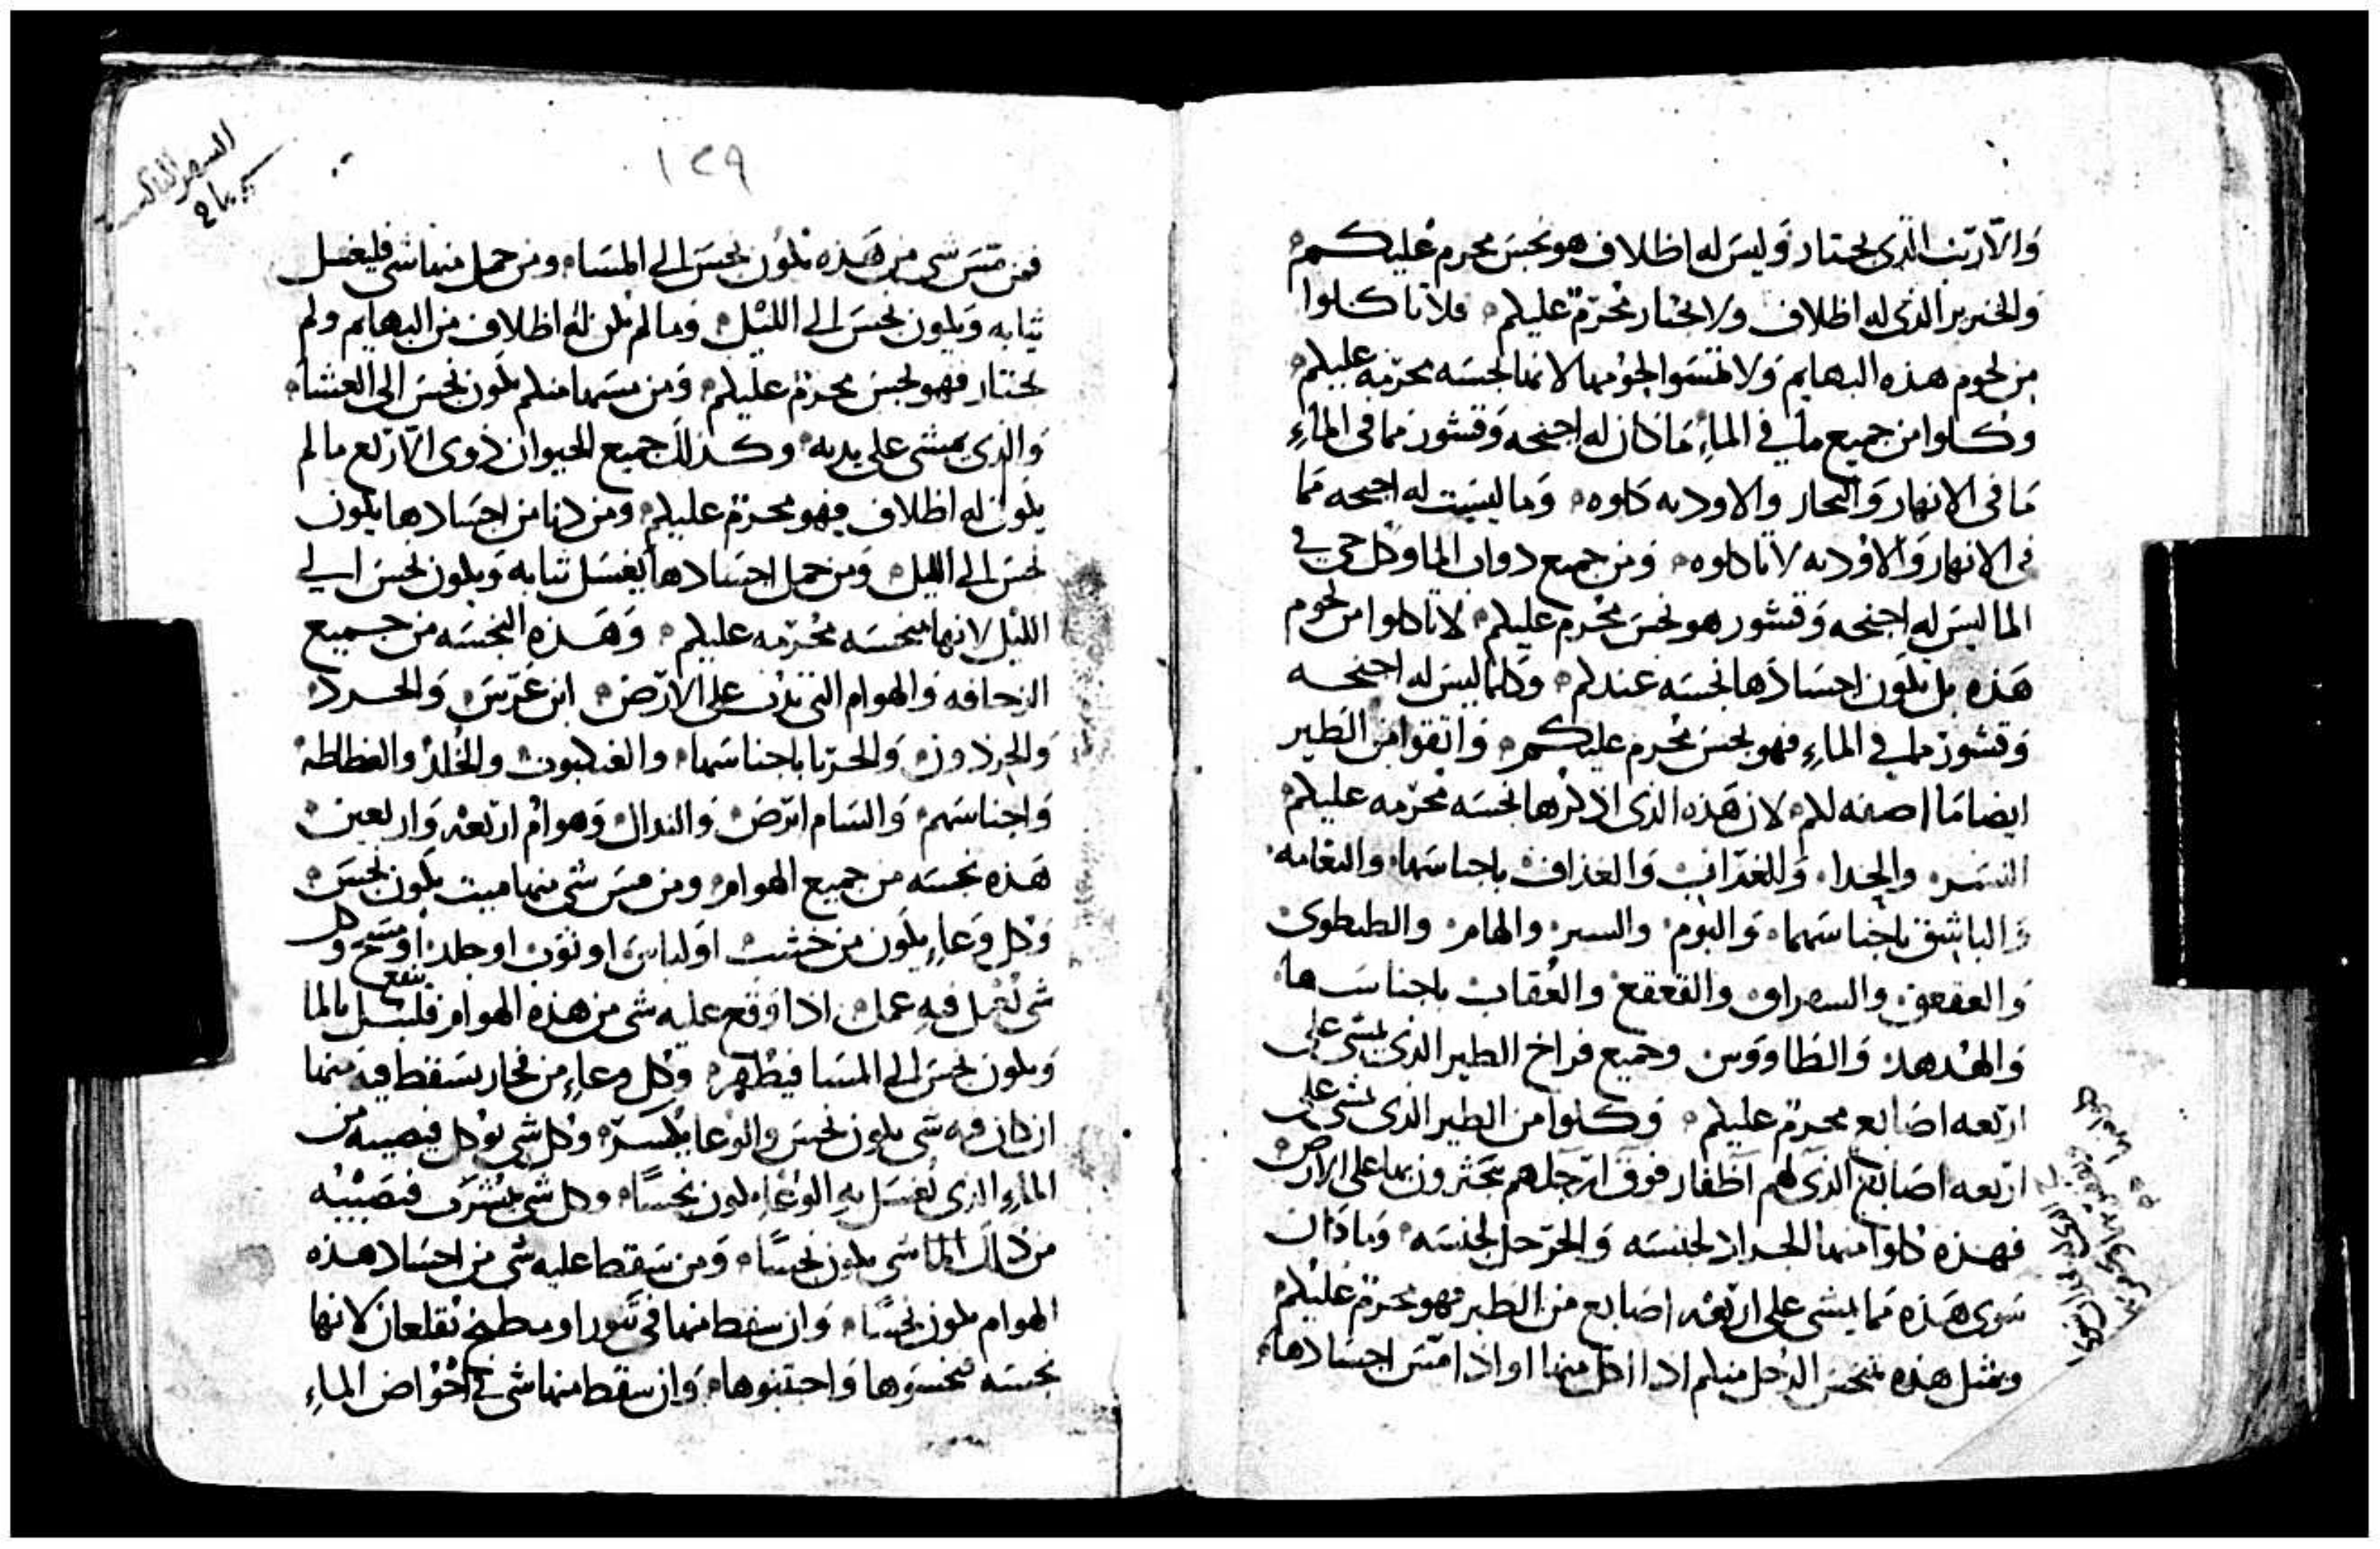 والارنب الذى يجتار وليس له اظلاف هو نجس محرم عليكم
والخنزير الذى له اظلاف ولا يجتار محرم عليكم فلا تاكلوا
من لحوم هذه البهايم ولا تمسوا لحومها لانها نجسه محرمه عليكم
وكلوا من جميع ما في الماء ما كان له اجنحه وقشور مما فى الماء
ما فى الانهار والبحار والاوديه كلوه وما ليست له اجنحه مما
فى الانهار والاوديه لا تاكلوه ومن جميع دواب الما وكل حى في
الما ليس له اجنحه وقشور هو نجس محرم عليكم لا تاكلوا من لحوم
هذه بل تكون اجسادها نجسه عندكم وكلما ليس له اجنحه
وقشور مما في الماء فهو نجس محرم عليكم واتقوا من الطير
ايضا ما اصفه لكم لان هذه الذى اذكرها نجسه محرمه عليكم
النسر والحدا والغراب والغداف باجناسها والنعامه
والباشق باجناسها والبوم والهام والطيطوى
والعقعق والقعقع والعقاب باجناسها
والهدهد والطاووس وجميع فراخ الطير الذى يمشى على
اربعه اصابع محرم عليكم وكلوا من الطير الذى يمشى على
اربعه اصابع الذى لهم اظفار فوق ارجلهم يحثرون بها على الارض
فهذه كلوا منها الجراد لجنسه والحرجل لجنسه وما كان
سوى هذه مما يمشى على اربعه اصابع من الطير فهو محرم عليكم
وبمثل هذه يتنجس الرجل منكم اذا اكل منها او اذا امتس اجسادها
١٢٩
السفر الثالث
فمن مس شى من هذه يكون نجس الى المساء ومن حمل منها شى فليغسل
ثيابه ويكون نجس الى الليل وما لم يكن له اظلاف من البهايم ولم
يجتار فهو نجس محرم عليكم ومن مسها منكم يكون نجس الى العشاء
والذى يمشى على يديه وكذلك جميع الحيوان ذوى الاربع ما لم
يكون له اظلاف فهو محرم عليكم ومن دنا من اجسادها يكون
نجس الى الليل ومن حمل اجسادها يغسل ثيابه ويكون نجس الى
الليل لانها نجسه محرمه عليكم وهذه النجسه من جميع
الزحافه والهوام التى تدب على الارض ابن عرس والجرد
والجرذون والحربا باجناسها والعنكبوت والخلد والعظاطه
واجناسهم والسام ابرص وهوام اربعه واربعين
هذه نجسه من جميع الهوام ومن مس شى منها ميت يكون نجس
وكل وعاء يكون من خشب او لباس او ثوب او جلد او مسح وكل
شى يعمل فيه عمل اذا وقع عليه شى من هذه الهوام فليبل ينقع بالما
ويكون نجس الى المسا فيطهر وكل وعاء من فخار يسقط فيه منها
ان كان فيه شى يكون نجس والوعا يكسر وكل شى يوكل فيصيبه من
الماء الذى يغسل به الوعاء يكون نجسًا وكل شى يشرب فيصيبه
من ذلك الما شى يكون نجسًا ومن سقط عليه شى من اجساد هذه
الهوام يكون نجسًا وان سقط منها فى تنور او مطبخ يقلعان لانها
نجسه نجسوها واجتنبوها وان سقط منها شى في احواض الماء